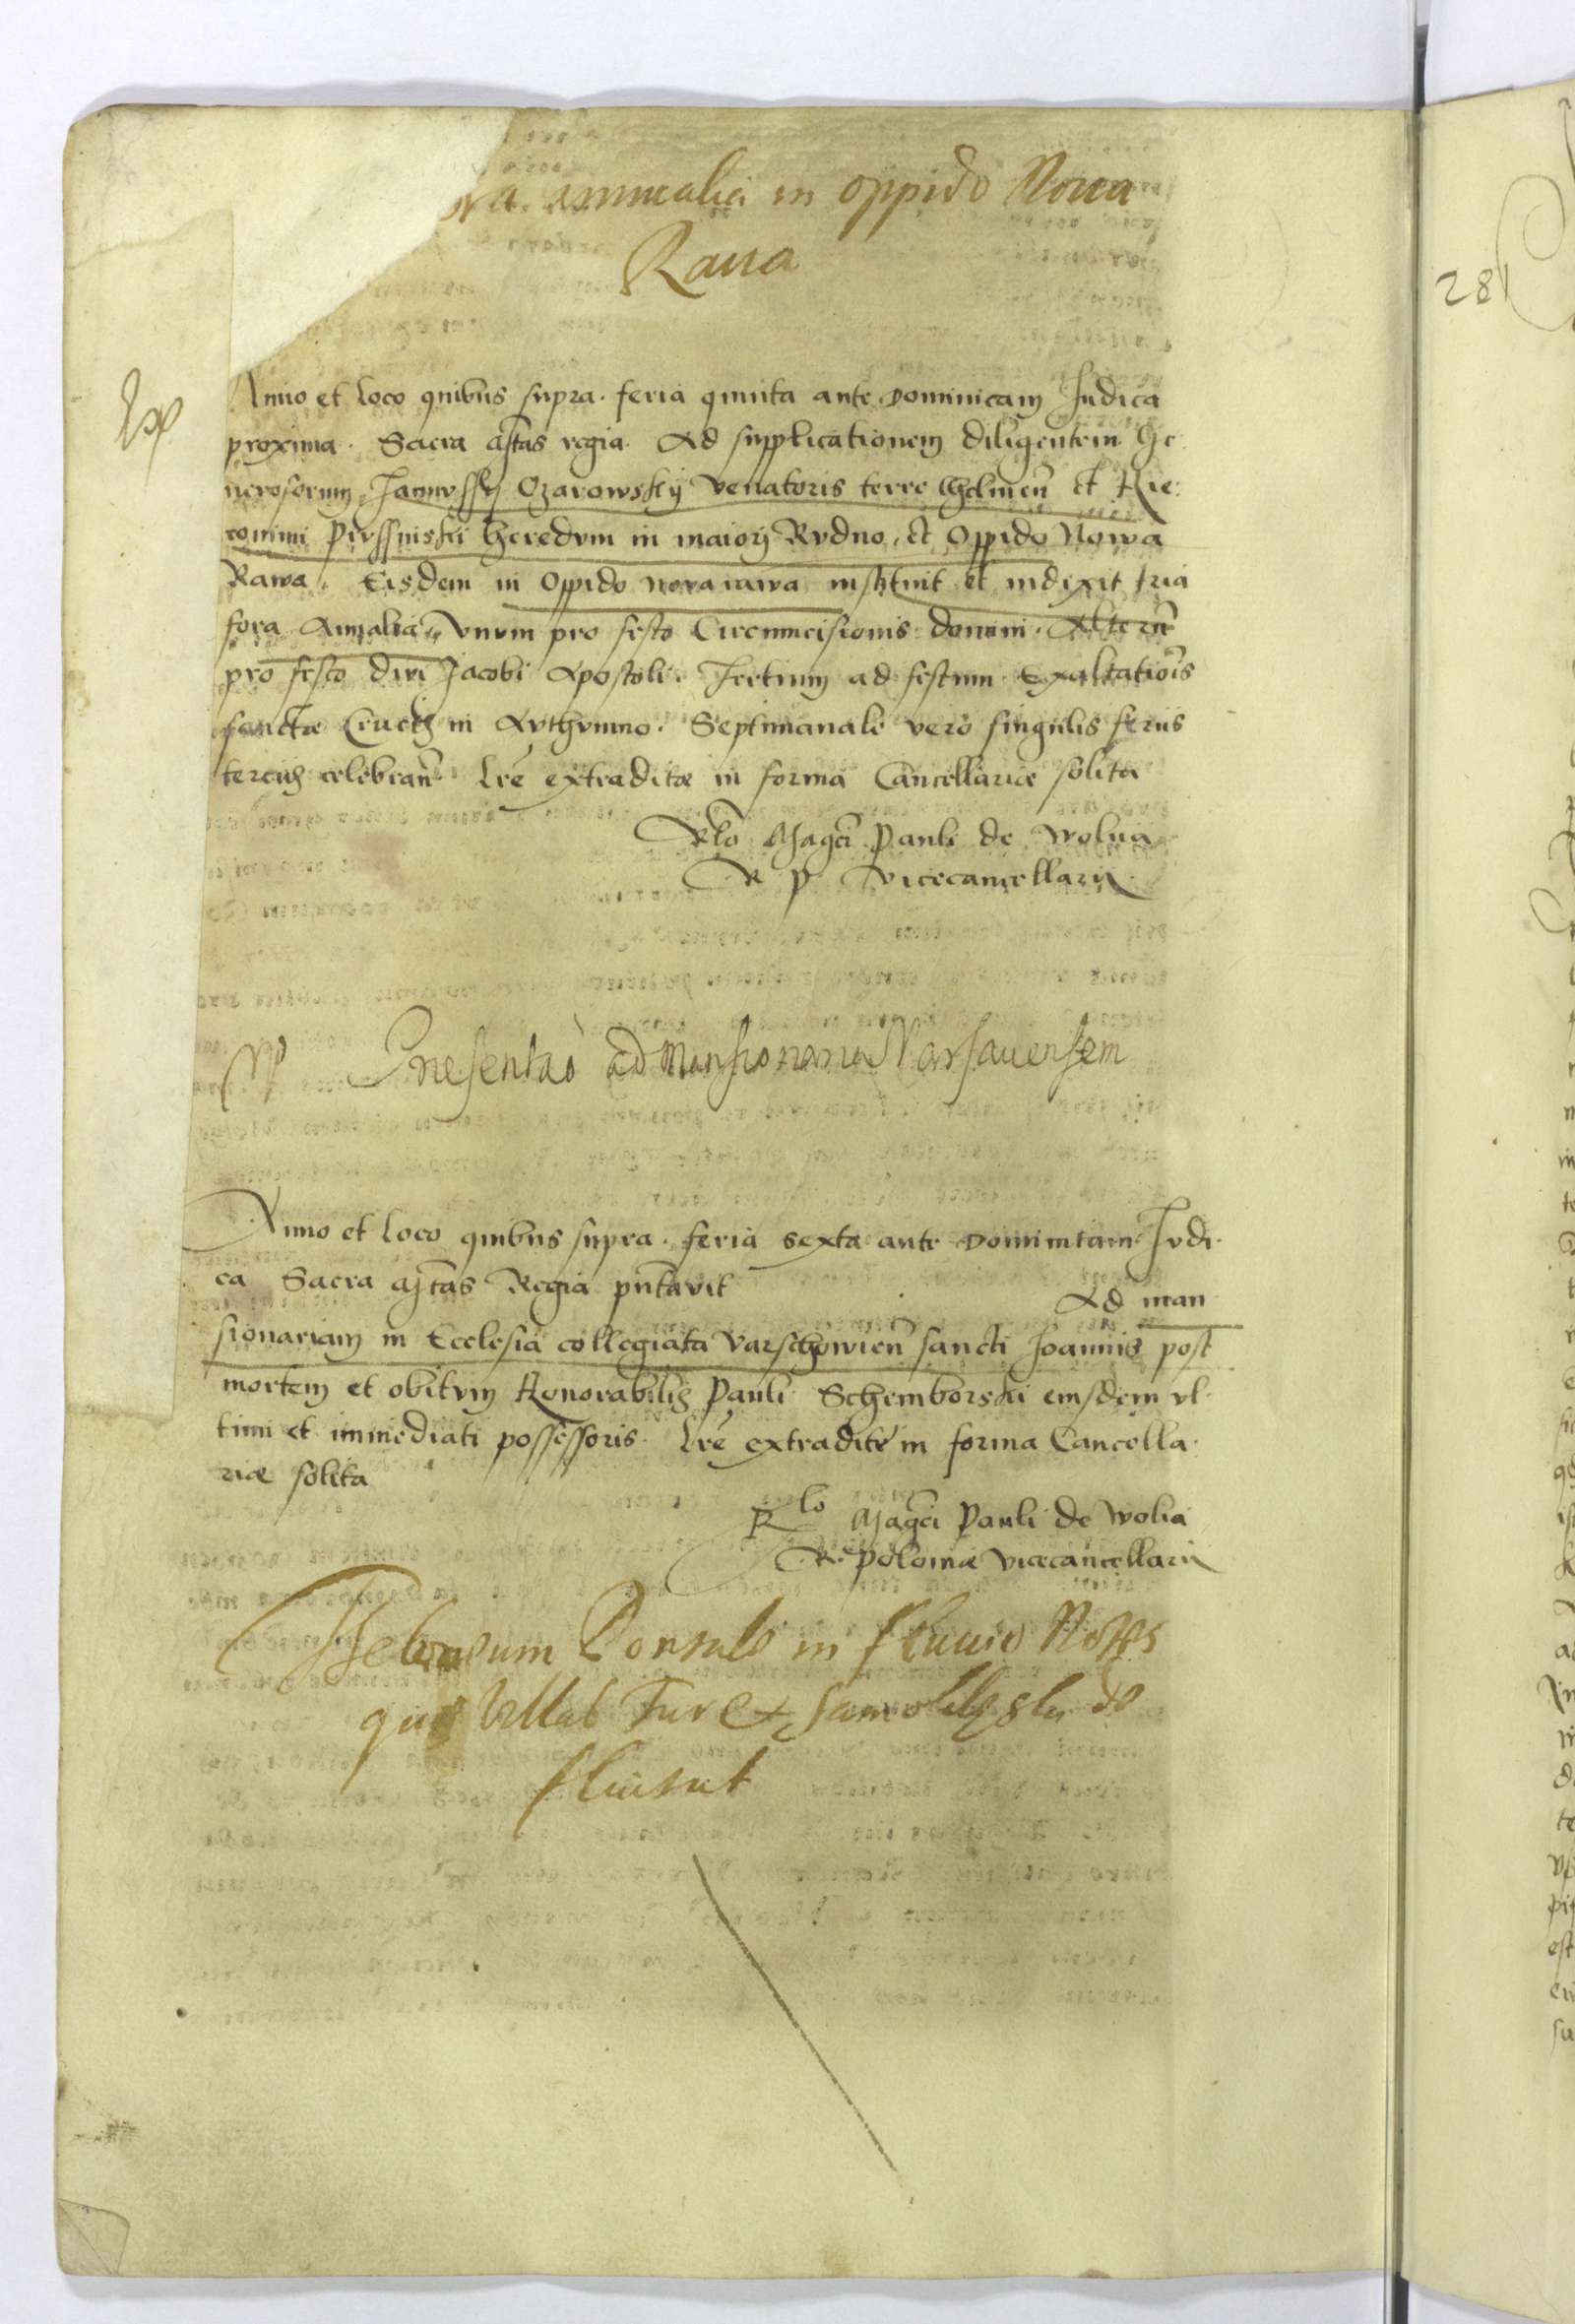 annualia in oppido Nova
Raua
Anno et loco quibus supra. feria quinta ante Dominicam Judica
proxima. Sacra Mtas regia. Ad supplicationem diligentem Ge
nerosorum Ozarowskÿ Venatoris terre Chelmen et
heredum in maiorj Rudno, et Oppido Nowa
Rawa. Eisdem in Oppido nova rawa instituit et indixit tria
fora Annalia, Unum pro festo Circumcisionis domini. Alterum
pro festo divi Jacobi Apostoli. Tertium ad festum Exaltatiois
sanctæ Crucis in Authumno. Septimanale vero singulis feriis
terciis celebran. Lrē extraditæ in forma Cancellariæ solita
Rlo Magci Pauli de Wolua
R P Vicecancellarii
Presentaò ad Mansionaria Varsauensem
Anno et loco quibus supra. feria sexta ante Dominicam Judi
ca Sacra Mtas Regia pntavit Ad man
sionariam in Ecclesia collegiata Varschovien sancti Joannis post
mortem et obitum Honorabilis Pauli Schemborski eiusdem ul
timi et immediati possessoris. Lrē extradite in forma Cancella
riæ solita
Rlo Magci Pauli de Wolia
R. Poloniæ Vicecancellarii
in fluuio
fluunt
281